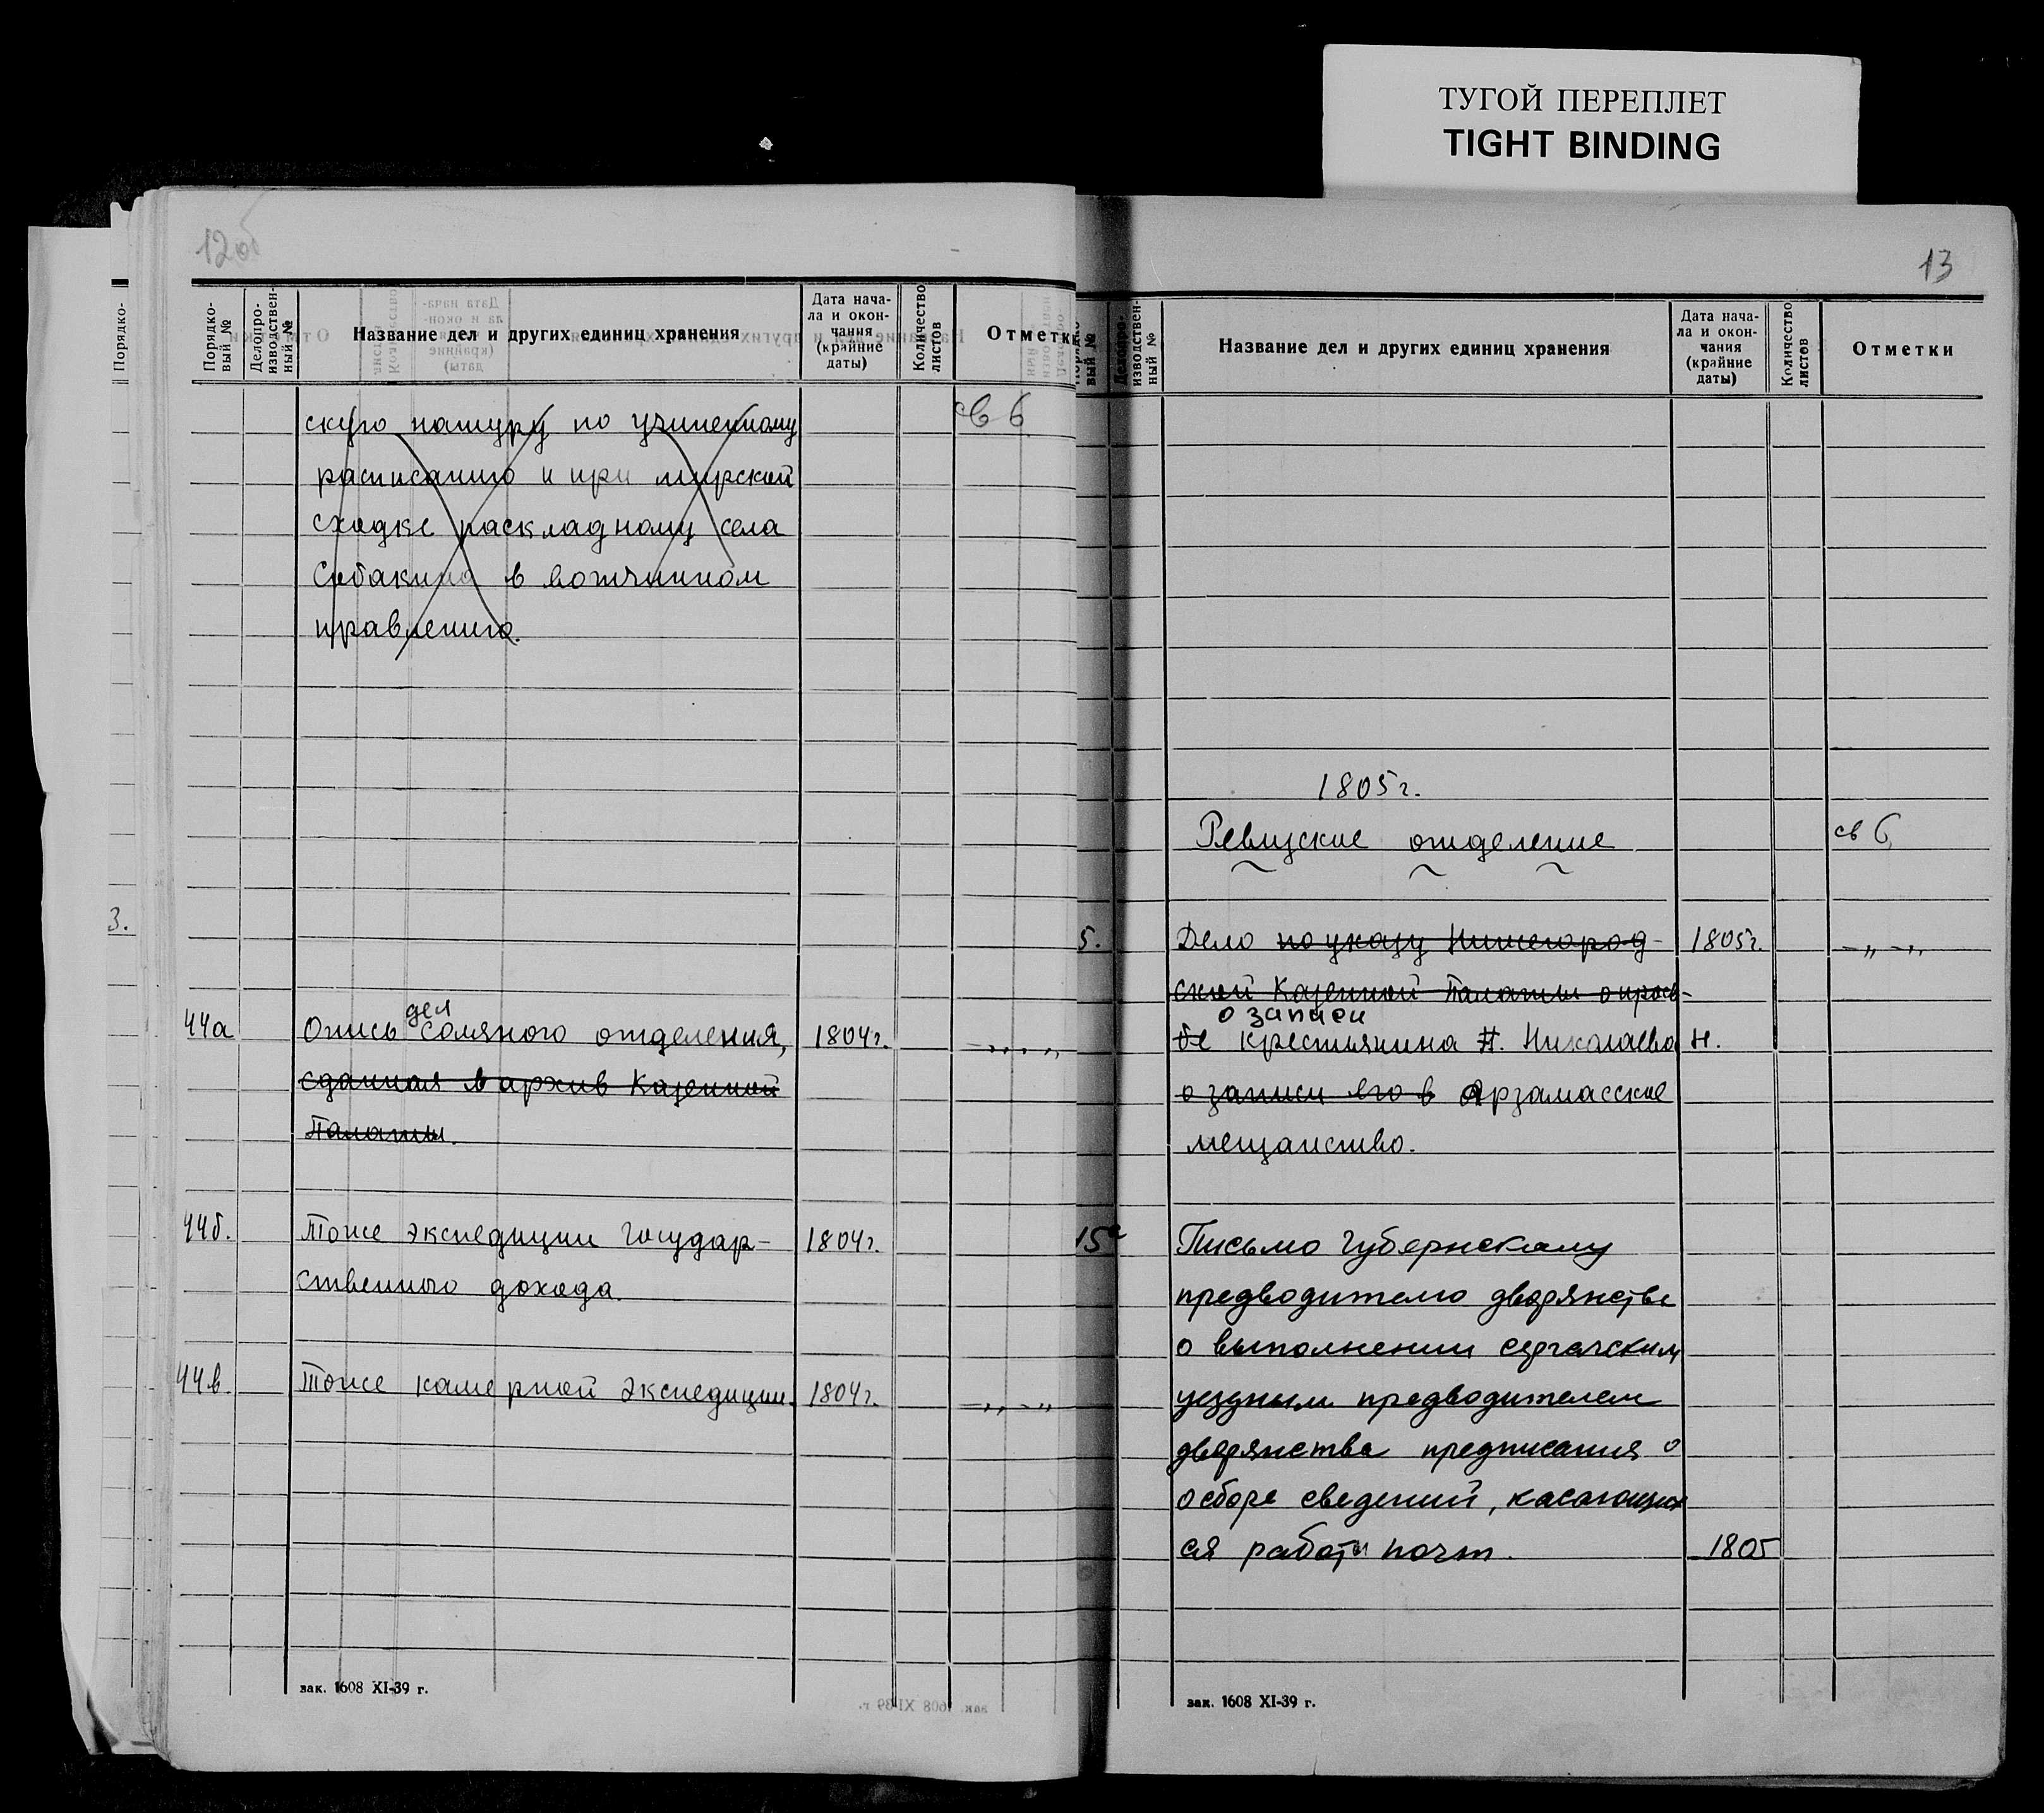 ТУГОЙ ПЕРЕПЛЕТ
TIGHT BINDING
12об
Порядко-
3.
Порядко-
вый №
Делопро-
изводствен-
ный №
Название дел и других единиц хранения
Дата нача-
ла и окон-
чания
(крайние
даты)
Количество
листов
Отметк
скую натуру по учиненному
св 6
расписанию и при мирской
сходке раскладному села
Собакина в вотчинном
правлению.
дел
44а Опись соляного отделения, 1804г. -„-„-
сданная в архив Казенной
Палаты.
44б. Тоже экспедиции государ- 1804г.
ственного дохода.
44в Тоже камерной экспедиции. 1804г. -„-„
зак. 1608 XI-39 г.
13
вый №
Делопро-
изводствен-
ный №
Название дел и других единиц хранения
Дата нача-
ла и окон-
чания
(крайние
даты)
Количество
листов
Отметки
1805г.
Ревизское отделение св 6
5. Дело по указу Нижегород- 1805г. -„-„
ской Казенной Палаты о прось-
о записи
бе крестьянина Н. Николаева Н.
о записи его в Арзамасское
мещанство.
15а Письмо губернскому
предводителю дворянства
о выполнении сергачским
уездным предводителем
дворянства предписания о
о сборе сведений, касающих
ся работы почт. 1805
зак. 1608 XI-39 г.